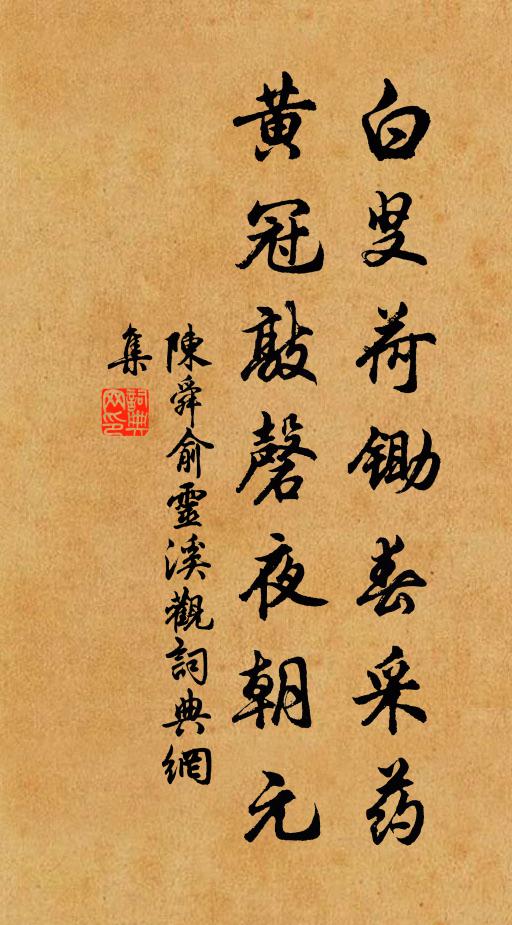 白叟荷锄春采药
黄冠敲磬夜朝元
陳舜俞靈溪觀詞典網
集
詞典
网印